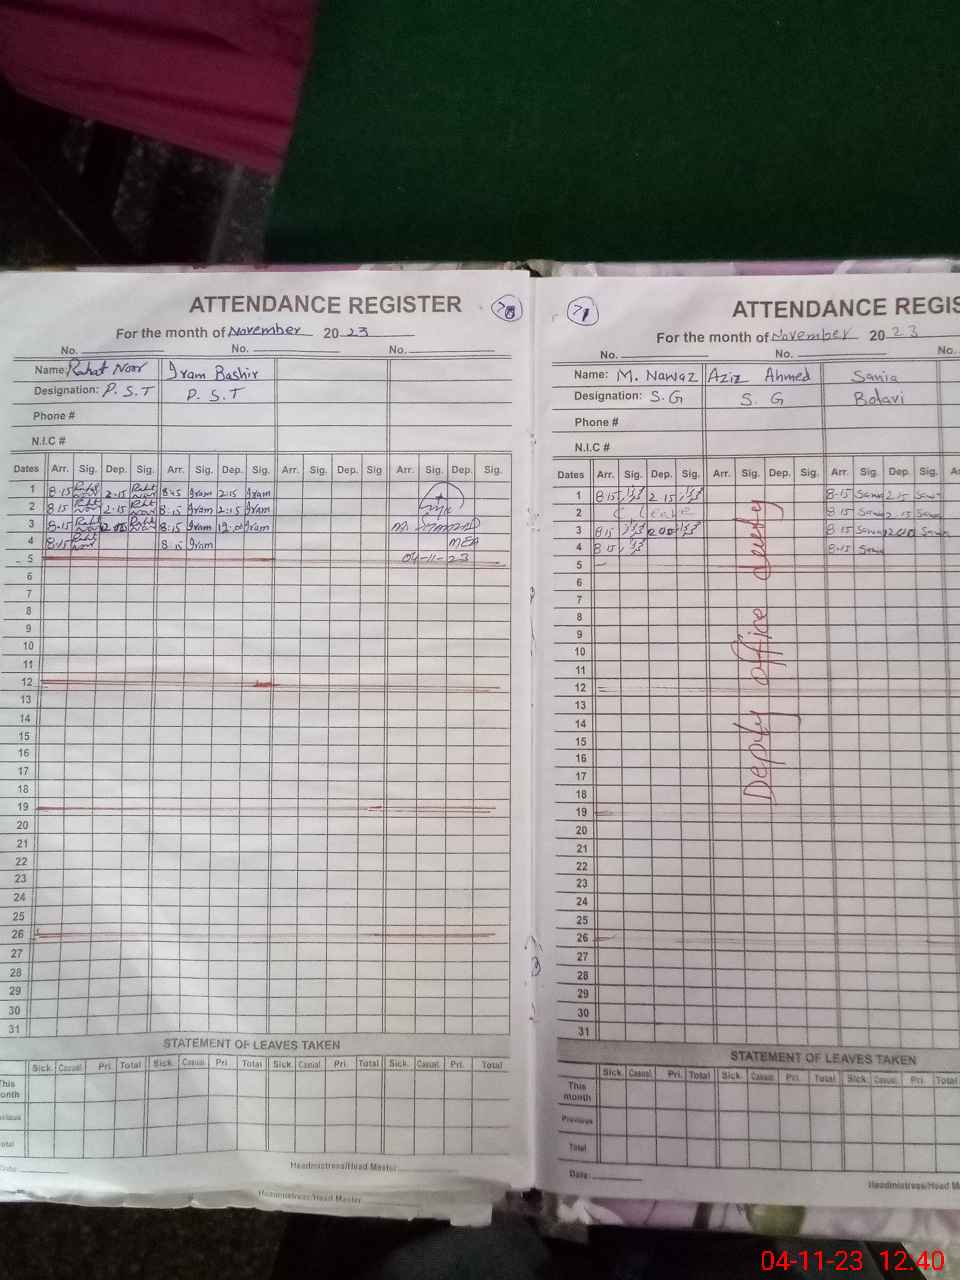 ATTENDANCE REGISTER
For the month of November 2023
No. No. No.
Name: Rahat Noor Iram Bashir
Designation: P.S.T P.S.T
Phone #
N.I.C #
Dates Arr. Sig. Dep. Sig. Arr. Sig. Dep. Sig. Arr. Sig. Dep. Sig Arr. Sig. Dep. Sig.
1 8.15 Raht Noor 2.15 Raht Noor 8.15 Iram 2.15 Iram
2 8.15 Raht Noor 2.15 Raht Noor 8.15 Iram 2.15 Iram
3 8.15 Raht Noor Raht Noor 8.15 Iram 12.00 Iram
4 8.15 Raht Noor 8.15 Iram MEA
5 04-11-23
6
7
8
9
10
11
12
13
14
15
16
17
18
19
20
21
22
23
24
25
26
27
28
29
30
31
STATEMENT OF LEAVES TAKEN
Sick. Casual. Pri. Total Sick. Casual. Pri. Total Sick. Casual. Pri. Total Sick. Casual. Pri. Total
This
month
Previous
Total
Date:
Headmistress/Head Master
Headmistress/Head Master
71
ATTENDANCE REGIS
For the month of November 2023
No. No. No
Name: M. Nawaz Aziz Ahmed Sania
Designation: S.G S.G Bolavi
Phone #
N.I.C #
Dates Arr. Sig. Dep. Sig. Arr. Sig. Dep. Sig. Arr. Sig. Dep. Sig.
1 8.15 2.15 8.15 2.15
2 C leave 8.15 2.15
3 8.15 8.15
4 8.15 8.15
5
6
7
8
9
10
11
12
13
14
15
16
17
18
19
20
21
22
23
24
25
26
27
28
29
30
31
Deputy office duty
STATEMENT OF LEAVES TAKEN
Sick. Casual. Pri. Total Sick. Casual. Pri. Total Sick. Casual. Pri. Total
This
month
Previous
Total
Date:
Headmistress/Head M
04-11-23 12.40